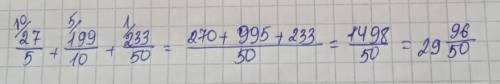 ^{10/}\frac{27}{5} + ^{5/}\frac{199}{10} + ^{1/}\frac{233}{50} = \frac{270+995+233}{50} = \frac{1498}{50} = 29\frac{96}{50}